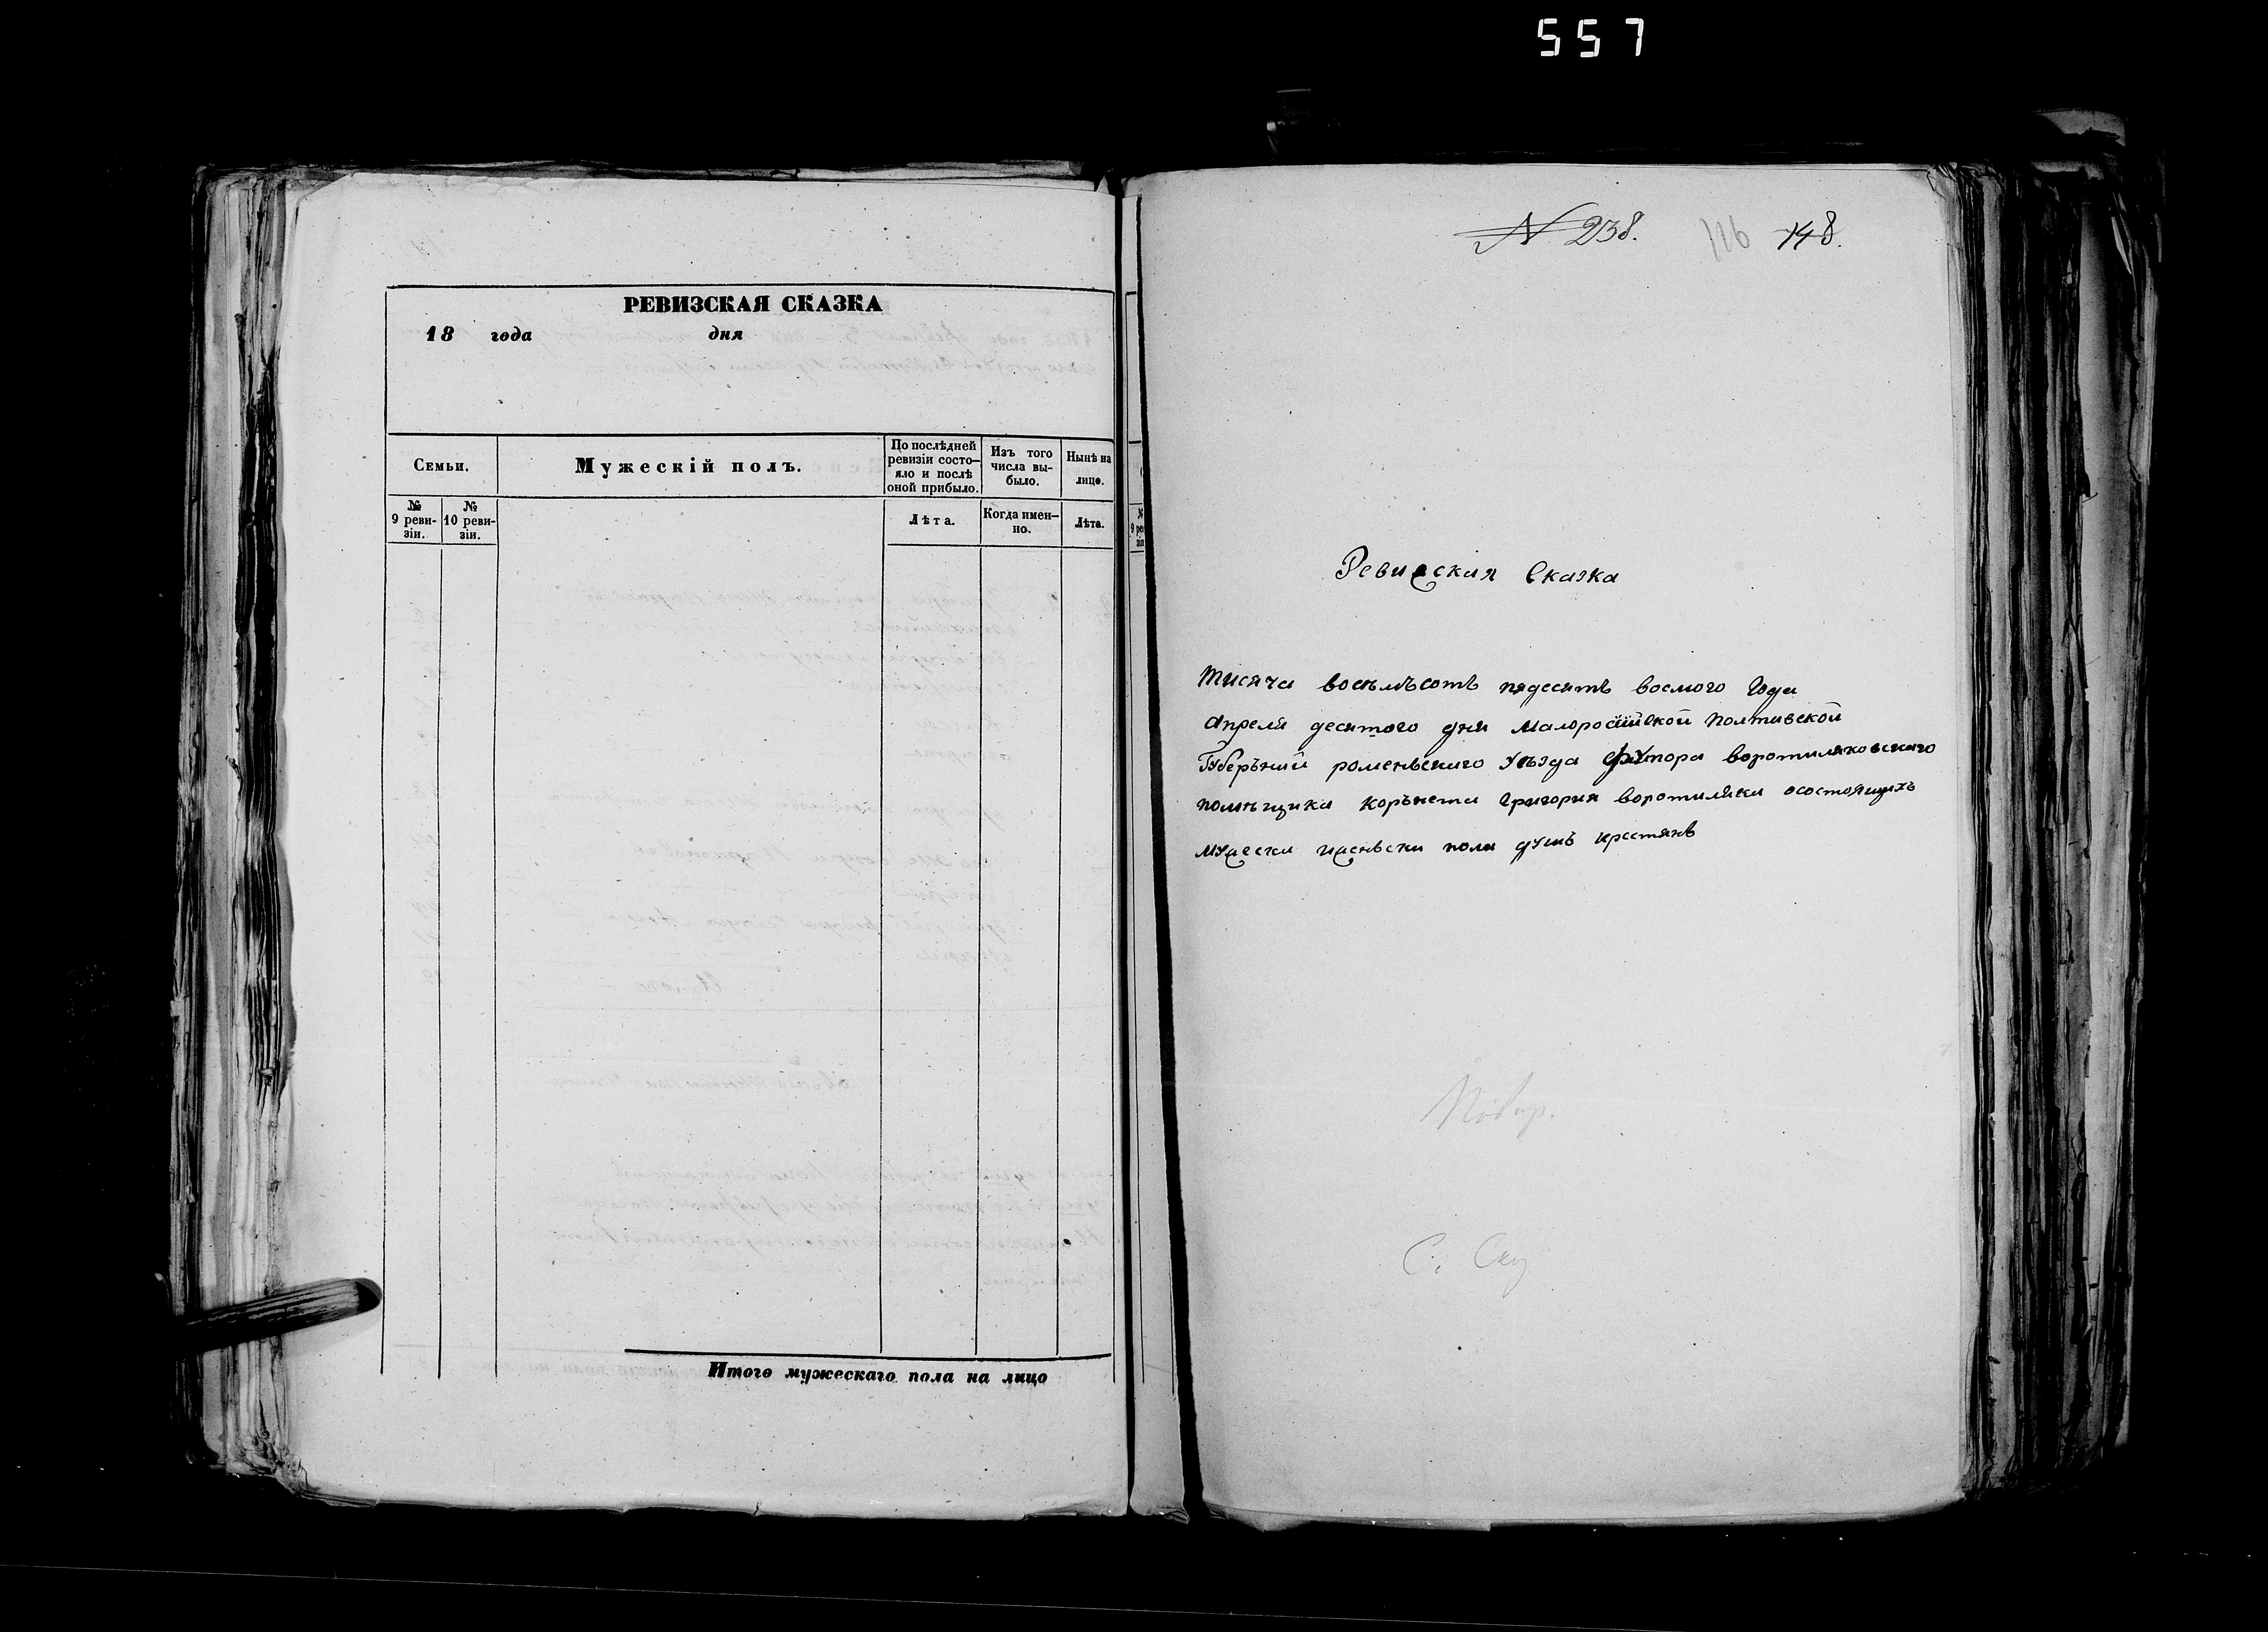 557
РЕВИЗСКАЯ СКАЗКА
18 года дня
Семьи.
Мужескій полъ.
По послѣдней ревизіи состо-яло и послѣ оной прибыло.
Изъ того числа вы-было.
Нынѣ на лицо.
№ 9 реви-зіи.
№ 10 реви-зіи.
Лѣта.
Когда имен-но.
Лѣта.
Итого мужескаго пола на лицо
N 238. 116 148.
Ревизская Сказка
Тисяча восъмъсотъ пядесятъ восмого Года
Апреля десятого дня Малоросійской Полтавской
Губеръний роменъского Уѣзда Футора воротиляковского
помѣщика корънета Григория воротиляки осостоящихъ
мужеска женъска пола душъ крестянъ